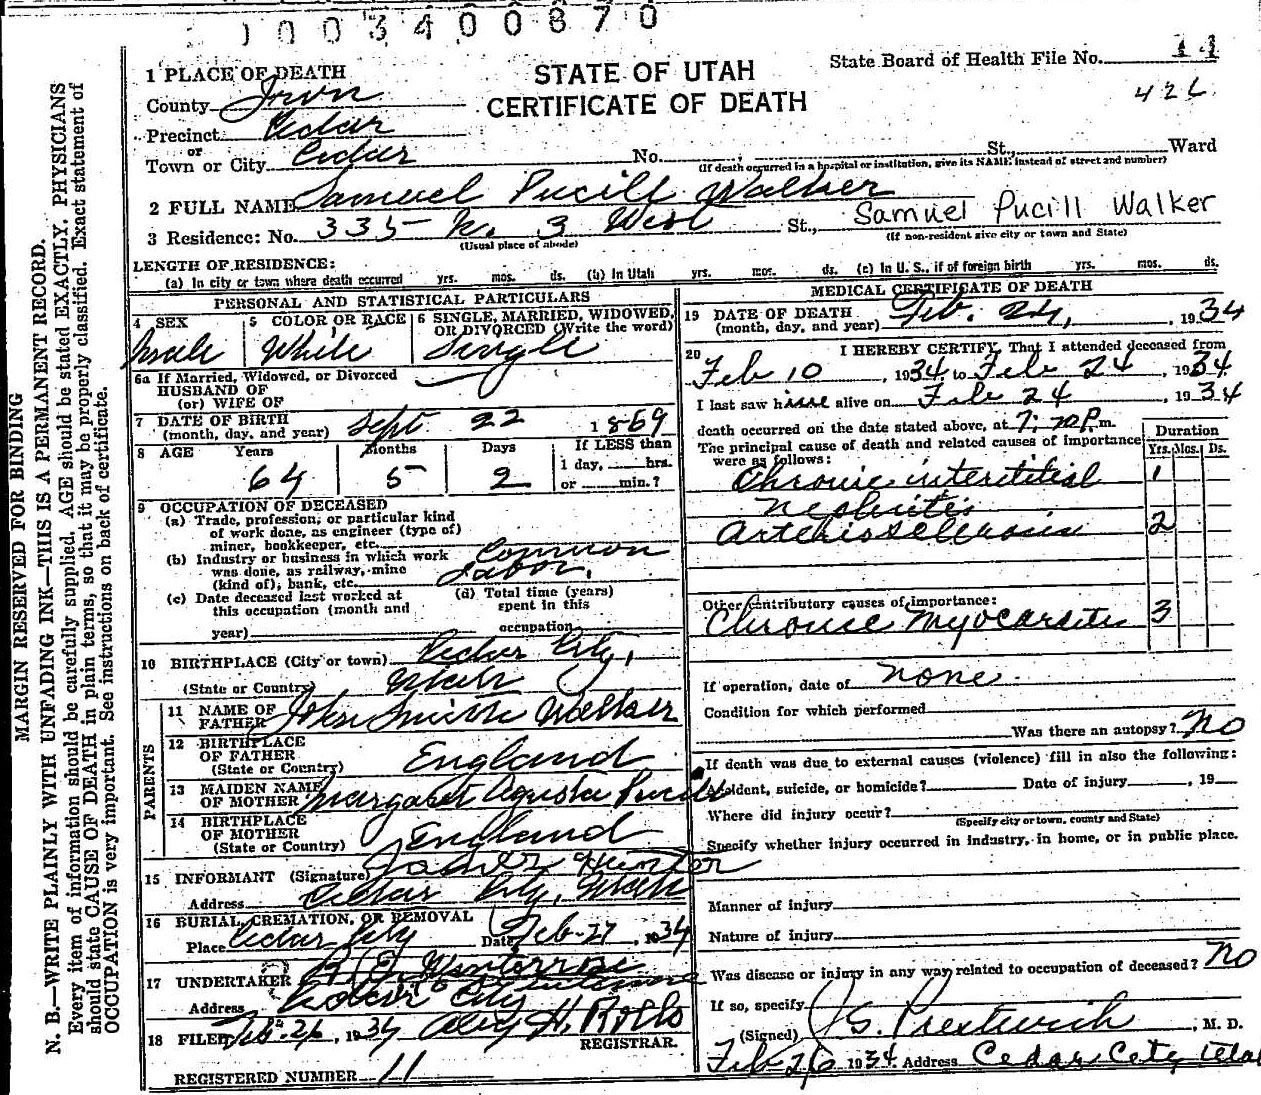 1003400870
State Board of Health File No. 11
426
STATE OF UTAH
CERTIFICATE OF DEATH
1 PLACE OF DEATH
County Iron
Precinct Cedar
or
Town or City Cedar No. St., Ward
(If death occurred in a hospital or institution, give its NAME instead of street and number)
2 FULL NAME Samuel Pucill Walker
Samuel Pucill Walker
3 Residence: No. 335 N. 3 West St.,
(Usual place of abode) (If non-resident give city or town and State)
LENGTH OF RESIDENCE:
(a) In city or town where death occurred yrs. mos. ds. (b) In Utah yrs. mos. ds. (c) In U. S., if of foreign birth yrs. mos. ds.
PERSONAL AND STATISTICAL PARTICULARS
4 SEX
Male
5 COLOR OR RACE
White
6 SINGLE, MARRIED, WIDOWED, OR DIVORCED (Write the word)
Single
6a If Married, Widowed, or Divorced
HUSBAND OF
(or) WIFE OF
7 DATE OF BIRTH
(month, day, and year) Sept 22 1869
8 AGE Years Months Days If LESS than
64 5 2 1 day, hrs.
or min.?
9 OCCUPATION OF DECEASED
(a) Trade, profession, or particular kind
of work done, as engineer (type of)
miner, bookkeeper, etc.
(b) Industry or business in which work
was done, as railway, mine
(kind of), bank, etc.
Common
Labor.
(c) Date deceased last worked at
this occupation (month and
year)
(d) Total time (years)
spent in this
occupation
10 BIRTHPLACE (City or town) Cedar City,
(State or Country) Utah
PARENTS
11 NAME OF
FATHER John Smith Walker
12 BIRTHPLACE
OF FATHER
(State or Country) England
13 MAIDEN NAME
OF MOTHER Margaret Agusta Pucill
14 BIRTHPLACE
OF MOTHER
(State or Country) England
15 INFORMANT (Signature) Hunter
Address Cedar City, Utah
16 BURIAL, CREMATION, OR REMOVAL
Place Cedar City Date Feb-27, 1934
17 UNDERTAKER
Address Cedar City
18 FILED Feb. 26, 1934 H. Rollo
REGISTRAR.
REGISTERED NUMBER 11
MEDICAL CERTIFICATE OF DEATH
19 DATE OF DEATH
(month, day, and year) Feb. 24, 1934
20 I HEREBY CERTIFY, That I attended deceased from
Feb 10, 1934, to Feb 24, 1934
I last saw him alive on Feb 24, 1934
death occurred on the date stated above, at P. m.
The principal cause of death and related causes of importance
were as follows:
Duration
Yrs. Mos. Ds.
Chronic interstitial 1
Nephritis
Arteriosclerosis 2
Other contributory causes of importance:
Chronic Myocarditis 3
If operation, date of None.
Condition for which performed
Was there an autopsy? No
If death was due to external causes (violence) fill in also the following:
Accident, suicide, or homicide? Date of injury, 19
Where did injury occur?
(Specify city or town, county and State)
Specify whether injury occurred in industry, in home, or in public place.
Manner of injury
Nature of injury
Was disease or injury in any way related to occupation of deceased? No
If so, specify
(Signed) J S. Prestwich, M. D.
Feb 26 1934 Address Cedar City Utah
MARGIN RESERVED FOR BINDING
N. B.—WRITE PLAINLY WITH UNFADING INK—THIS IS A PERMANENT RECORD.
Every item of information should be carefully supplied. AGE should be stated EXACTLY. PHYSICIANS
should state CAUSE OF DEATH in plain terms, so that it may be properly classified. Exact statement of
OCCUPATION is very important. See instructions on back of certificate.